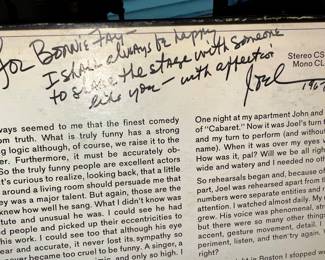 For BONNIE FAY—
I shall always be happy
to share the stage with someone
like you—with affection
Joel
Stereo CS
Mono CL
ways seemed to me that the finest comedy
om truth. What is truly funny has a strong
ng logic although, of course, we raise it to the
er. Furthermore, it must be accurately ob-
So the truly funny people are excellent actors
t's curious to realize, looking back, that a little
around a living room should persuade me that
ey was a major talent. But again, those are the
knew how well he sang. What I didn't know was
tute and unusual he was. I could see he had
d people and picked up their eccentricities to
his work. I could see too that although his eye
ear and accurate, it never lost its sympathy so
ever became too cruel to be funny. A singer, a
One night at my apartment John and
of "Cabaret." Now it was Joel's turn t
and my turn to perform (and without
name). When it was over my eyes w
How was it, pal? Will we be all righ
wide and watery and I needed no oth
So rehearsals began and, because of
part, Joel was rehearsed apart from t
numbers were separate entities and r
attention. I watched almost daily. My
grew. His voice was phenomenal, str
but there were so many other things
accent, gesture movement, detail. I
periment, listen, and then try again.
right?
ht in Boston I stopped w